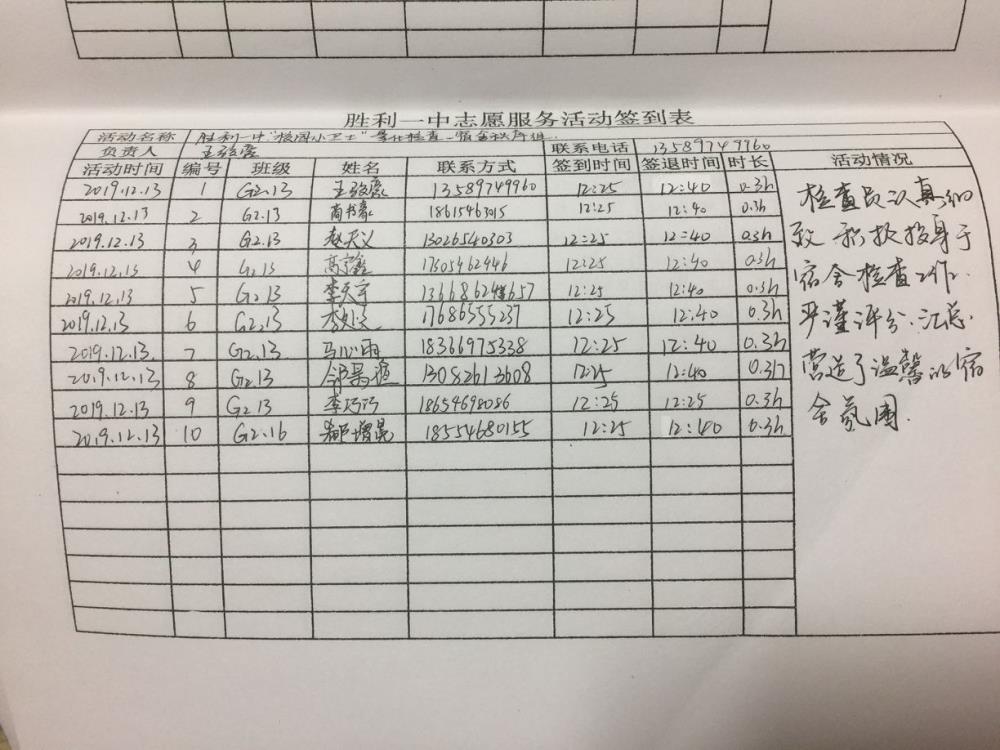 胜利一中志愿服务活动签到表
活动名称 胜利一中"校园小卫士"量化检查—宿舍秩序组
负责人 联系电话 13589749960
活动时间 编号 班级 姓名 联系方式 签到时间 签退时间 时长 活动情况
2019.12.13 1 G2.13 13589749960 12:25 12:40 0.3h
2019.12.13 2 G2.13 18615463015 12:25 12:40 0.3h
2019.12.13 3 G2.13 赵天义 13026540303 12:25 12:40 0.3h
2019.12.13 4 G2.13 高宇鑫 17305462446 12:25 12:40 0.3h
2019.12.13 5 G2.13 李天宇 12:25 12:40 0.3h
2019.12.13 6 G2.13 17686555237 12:25 12:40 0.3h
2019.12.13 7 G2.13 马心雨 18366975338 12:25 12:40 0.3h
2019.12.13 8 G2.13 13082613608 12:25 12:40 0.3h
2019.12.13 9 G2.13 李巧巧 18654698086 12:25 12:25 0.3h
2019.12.13 10 G2.16 18554680155 12:25 12:40 0.3h
检查员认真细
致 积极投身于
宿舍检查工作.
严谨评分、汇总.
营造了温馨的宿
舍氛围.